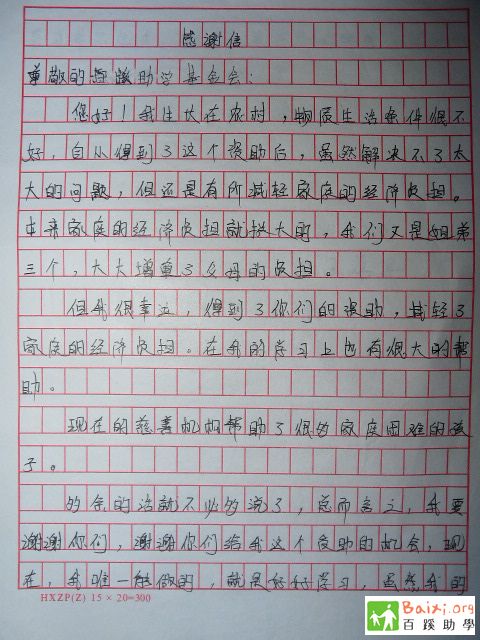 感谢信
尊敬的百蹊助学基金会：
您好！我生长在农村，物质生活条件很不
好，自从得到了这个资助后，虽然解决不了太
大的问题，但还是有所减轻家庭的经济负担。
本来家庭的经济负担就挺大的，我们又是姐弟
三个，大大增重了父母的负担。
但我很幸运，得到了你们的资助，减轻了
家庭的经济负担。在我的学习上也有很大的帮
助。
现在的慈善机构帮助了很多家庭困难的孩
子。
多余的话就不必多说了，总而言之，我要
谢谢你们，谢谢你们给我这个受助的机会，现
在，我唯一能做的，就是好好学习，虽然我的
HXZP(Z) 15×20=300
Baixi.org
百蹊助學